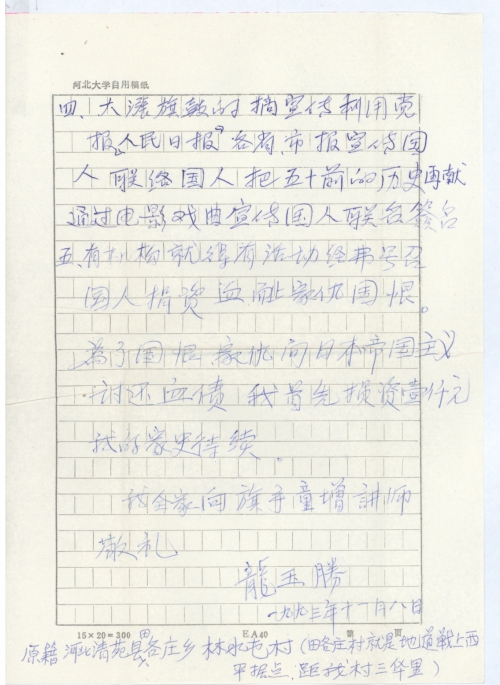 河北大学自用稿纸
四、大张旗鼓的搞宣传利用党
报“人民日报”各省、市报宣传国
人联络国人把五十前的历史再献
通过电影戏曲宣传国人联名签名
五、有机构就得有活动经费号召
国人捐资血耻家仇国恨。
为了国恨、家仇向日本帝国主义
讨还血债我首先捐资壹仟元
我的家史待续。
我全家向旗手童增讲师
敬礼
龍玉勝
一九九三年十一月八日
15×20=300 EA40 第 页
原籍河北清苑县各庄乡林水屯村(田各庄村就是地道战上西
平据点、距我村三华里)